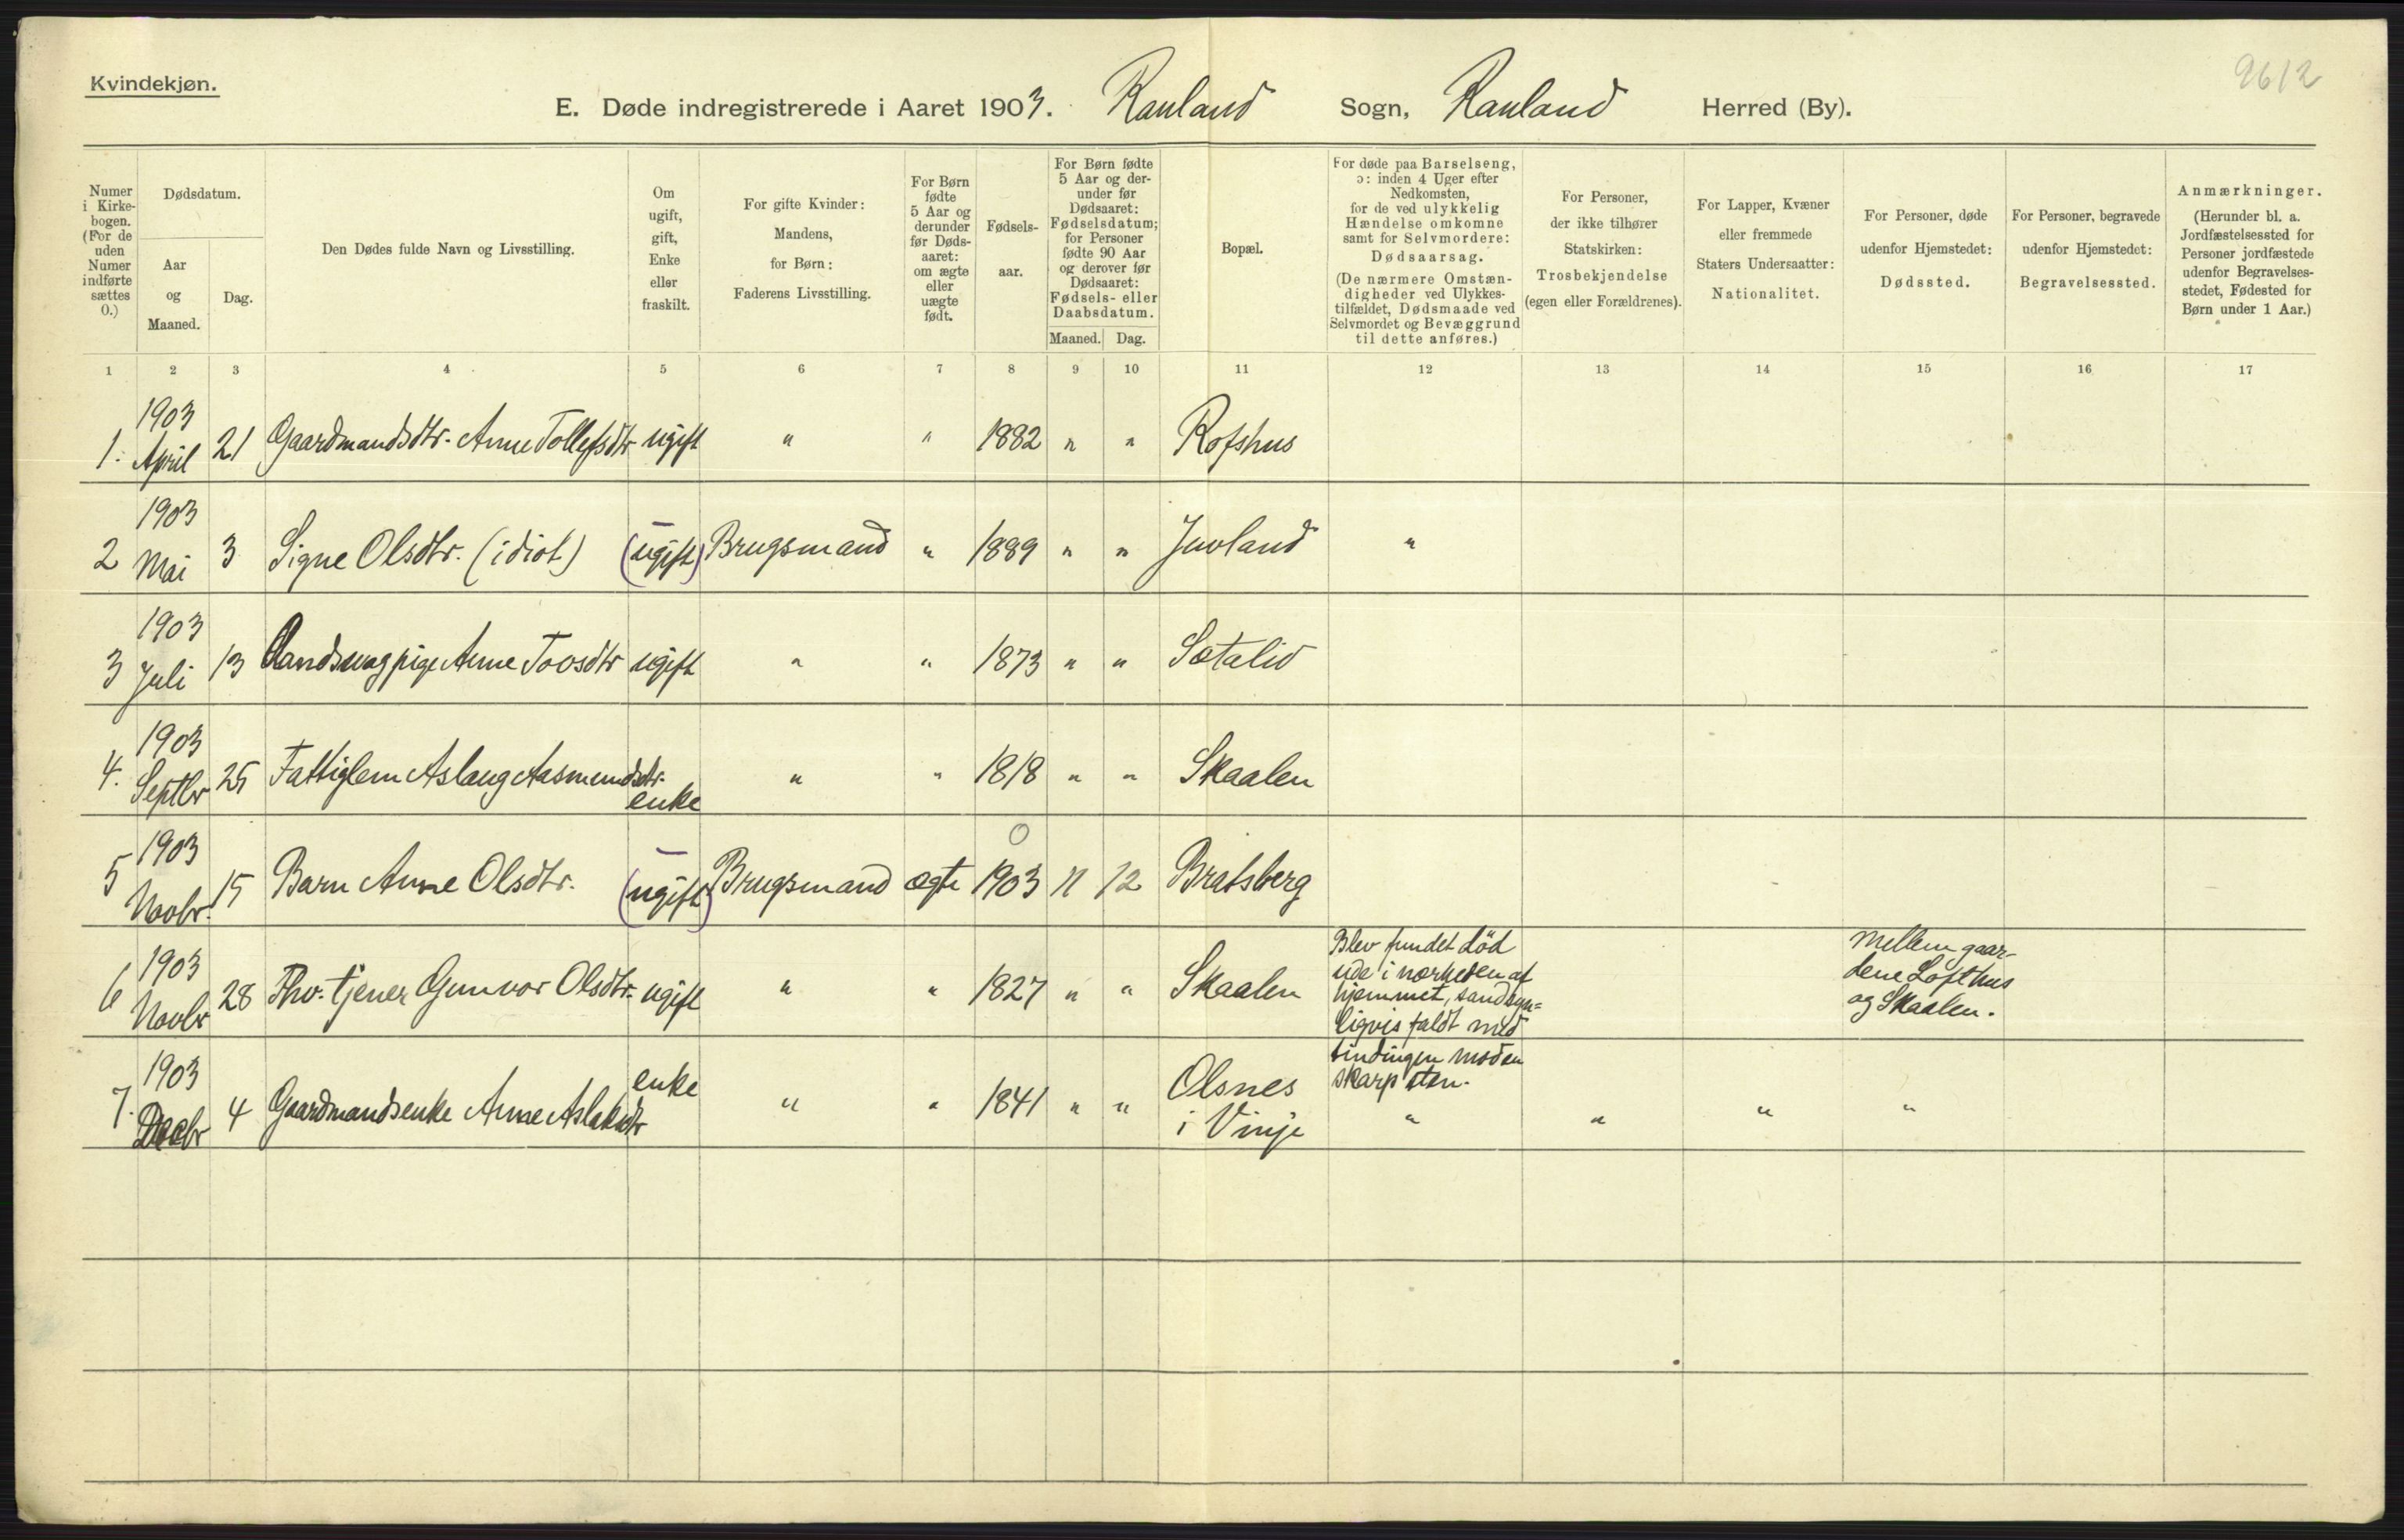 Kvindekjøn.
9612
E. Døde indregistrerede i Aaret 1903. Rauland Sogn, Rauland Herred (By).
Numer i Kirke-bogen. (For de uden Numer indførte sættes 0.)
Dødsdatum.
Aar og Maaned.
Dag.
Den Dødes fulde Navn og Livsstilling.
Om ugift, gift, Enke eller fraskilt.
For gifte Kvinder: Mandens, for Børn: Faderens Livsstilling.
For Børn fødte 5 Aar og derunder før Døds-aaret: om ægte eller uægte født.
Fødsels-aar.
For Børn fødte 5 Aar og der-under før Dødsaaret: Fødselsdatum; for Personer fødte 90 Aar og derover før Dødsaaret: Fødsels- eller Daabsdatum.
Maaned. Dag.
Bopæl.
For døde paa Barselseng, ɔ: inden 4 Uger efter Nedkomsten, for de ved ulykkelig Hændelse omkomne samt for Selvmordere: Dødsaarsag.
(De nærmere Omstæn-digheder ved Ulykkes-tilfældet, Dødsmaade ved Selvmordet og Bevæggrund til dette anføres.)
For Personer, der ikke tilhører Statskirken: Trosbekjendelse (egen eller Forældrenes).
For Lapper, Kvæner eller fremmede Staters Undersaatter: Nationalitet.
For Personer, døde udenfor Hjemstedet: Dødssted.
For Personer, begravede udenfor Hjemstedet: Begravelsessted.
Anmærkninger. (Herunder bl. a. Jordfæstelsessted for Personer jordfæstede udenfor Begravelses-stedet, Fødested for Børn under 1 Aar.)
1 2 3 4 5 6 7 8 9 10 11 12 13 14 15 16 17
1. 1903 April 21 Gaardmandsdtr. Anne Tollefsdtr ugift " " 1882 " " Rofshus
2 1903 Mai 3 Signe Olsdtr. (idiot) (ugift) Brugsmand " 1889 " " Juvland "
3 1903 Juli 13 Anne Tovsdtr ugift " " 1873 " " Sætalid
4. 1903 Septbr 25 Fattiglem Aslaug Aasmundsdtr. enke " " 1818 " " Skaalen
5 1903 Novbr. 15 Barn Anne Olsdtr. (ugift) Brugsmand ægte 1903 11 12 Bratsberg
0
6 1903 Novbr 28 Fhv. tjener Gunvor Olsdtr. ugift " " 1827 " " Skaalen
Blev fundet død
ude i nærheden af
hjemmet, sandsyn=
ligvis faldt med
tindingen mod en
skarp sten.
mellem gaar-
dene Lofthus
og Skaalen.
7. 1903 Decbr 4 Gaardmandsenke Anne Aslaksdtr enke " " 1841 " " Olsnes
i Vinje " " " "